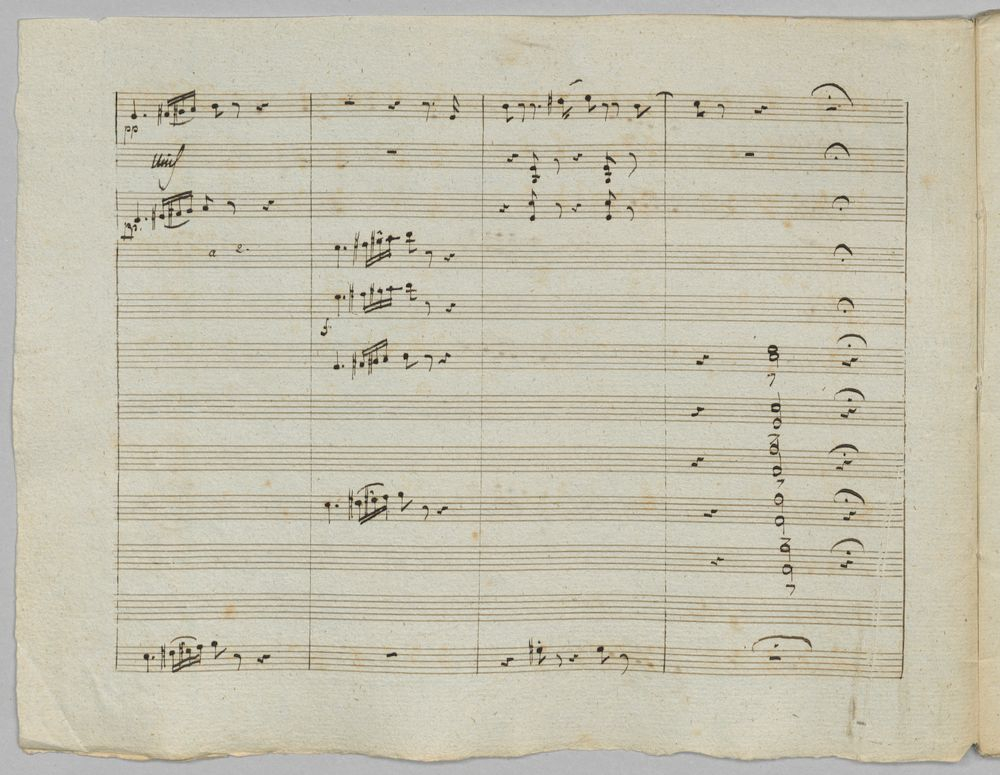 pp
unis
pp.
a 2.
f.